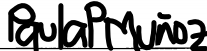 PaulaPMuñoz